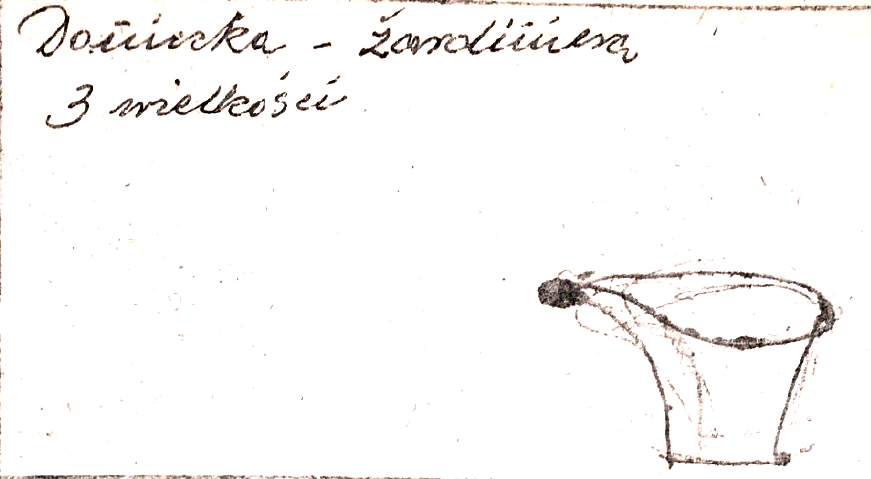 Doniczka - żardiniera
3 wielkości